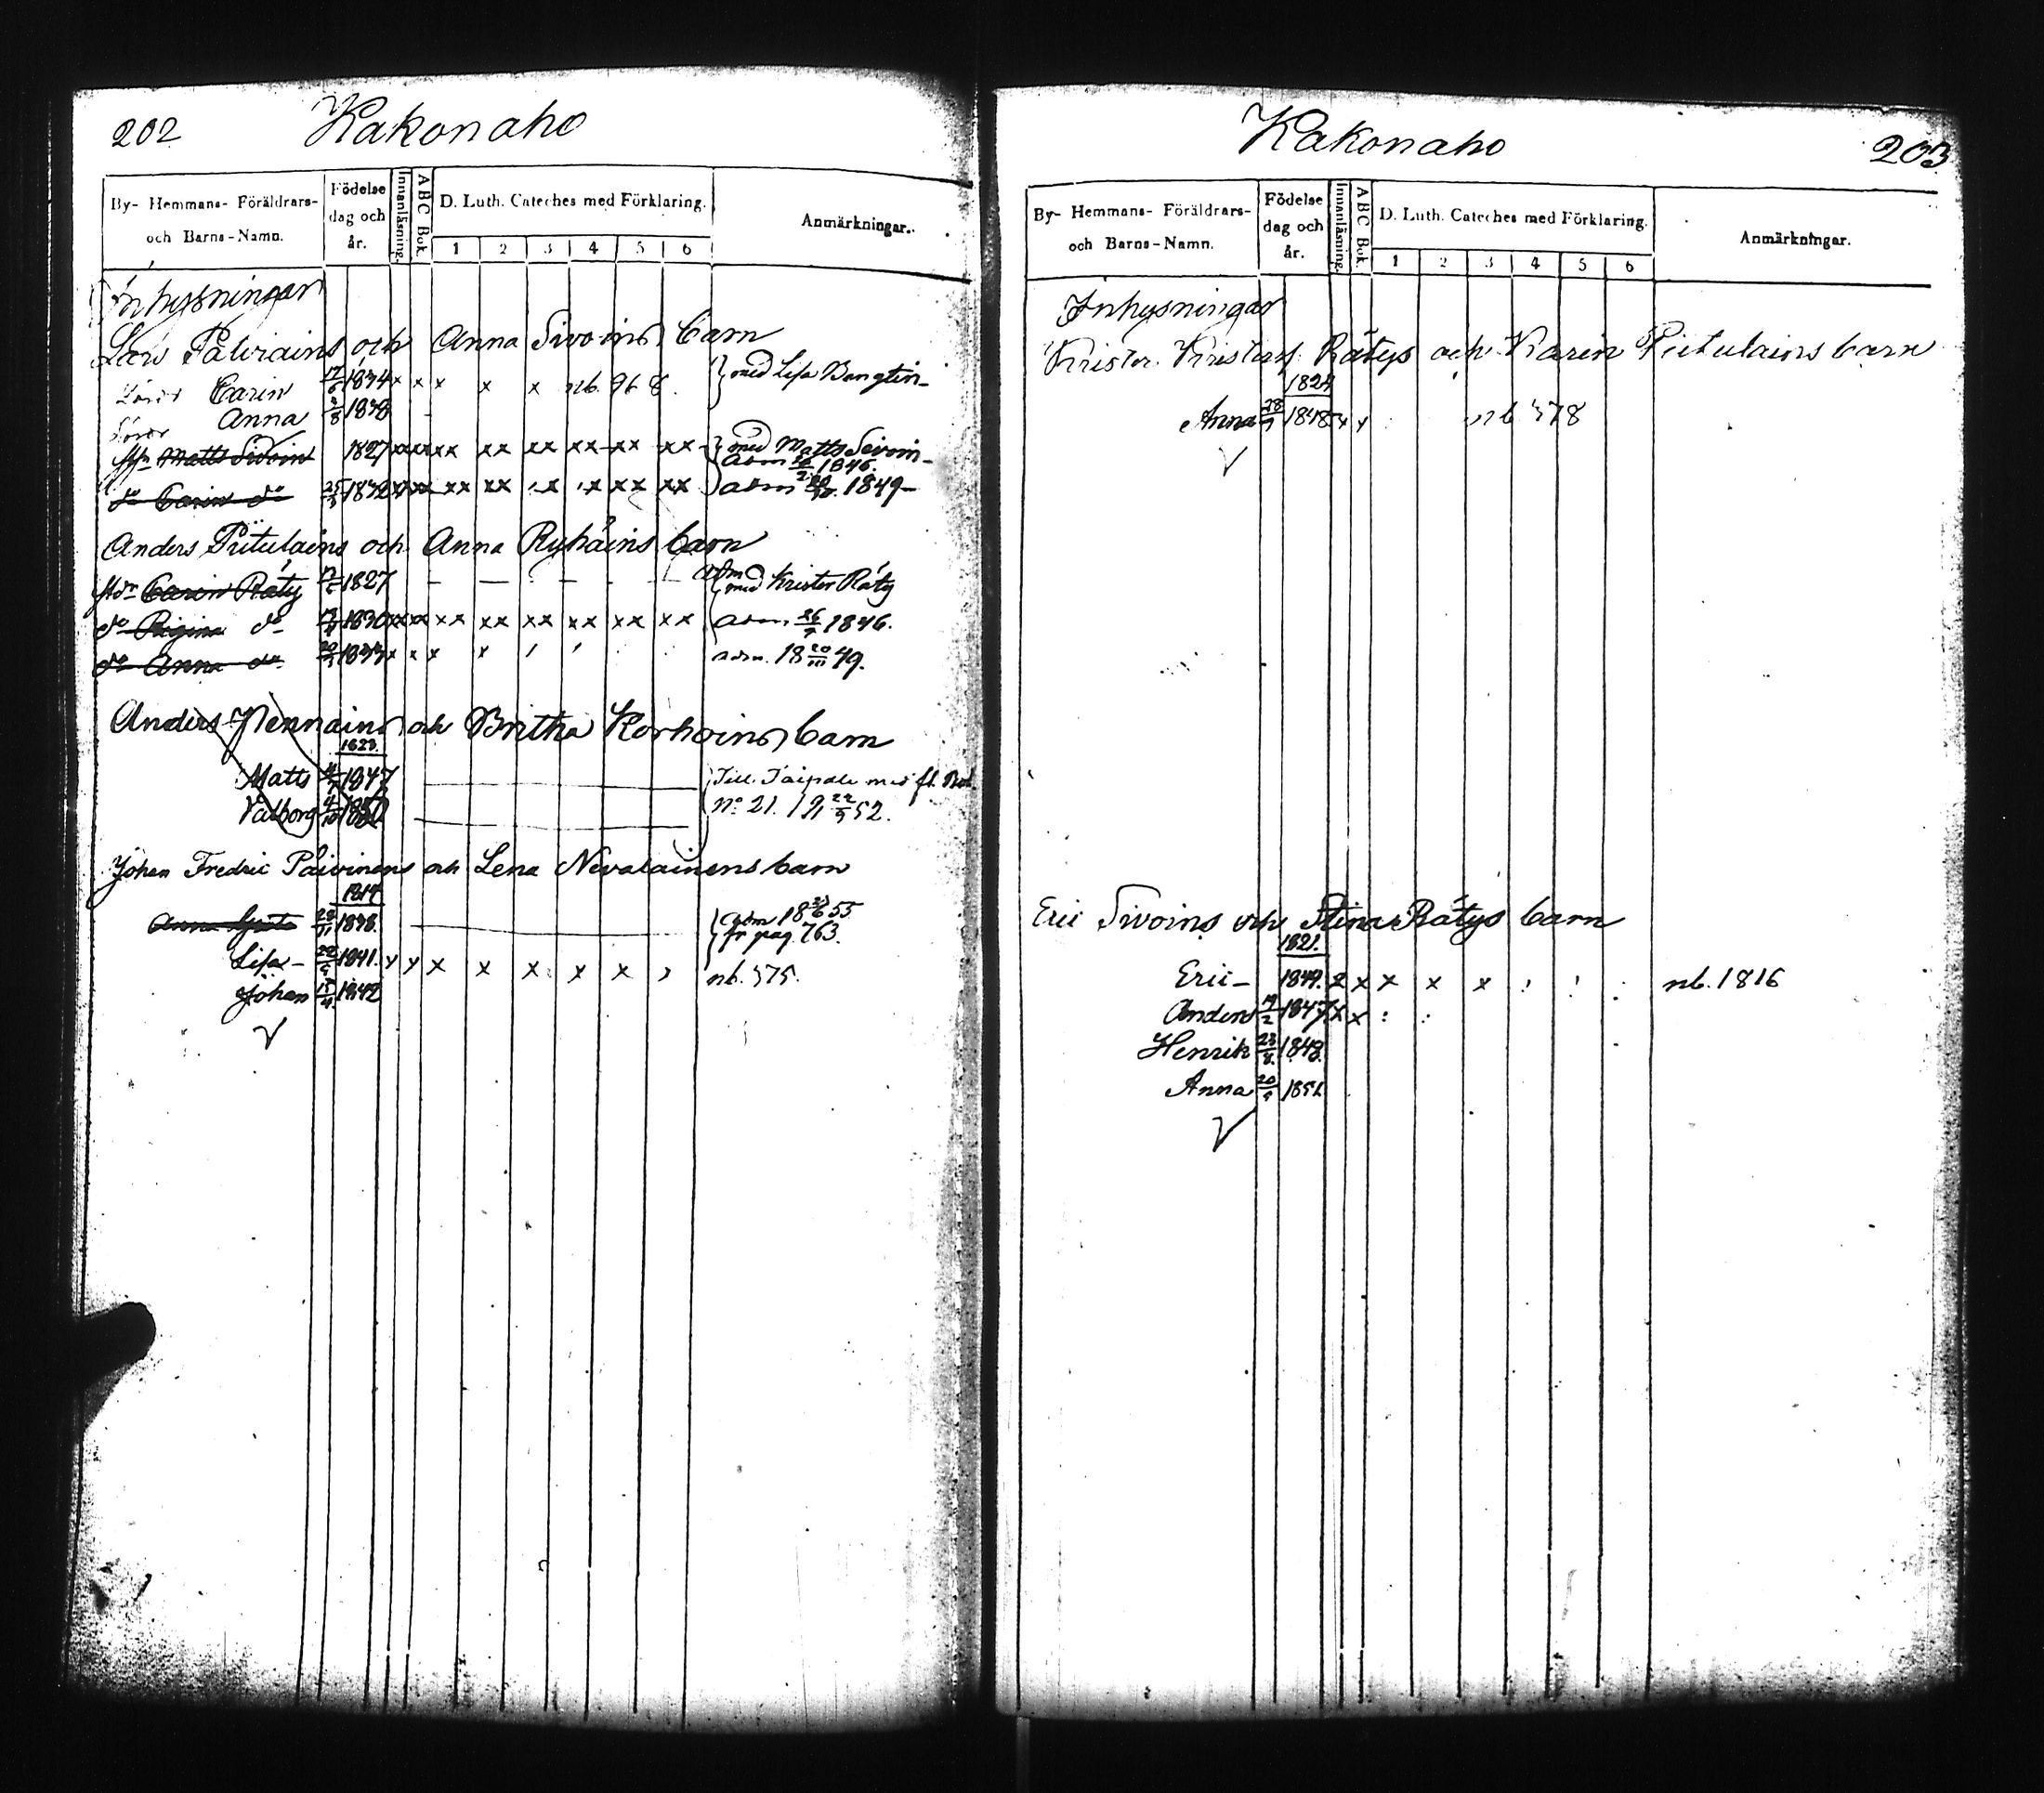 202 Kakonaho
By- Hemmans- Föräldrars- och Barns-Namn.
Födelse dag och år.
Innanläsning.
ABC Bok.
D. Luth. Cateches med Förklaring.
1 2 3 4 5 6
Anmärkningar.
Inhysningar
Lars Palviains och Anna Sivoins barn
Carin 17/6 1834 x x x x x nb. 968. med Lisa Bengtin
Anna 1838
Matts Sivoin 1827 xx xx xx xx xx xx xx xx med Matts Sivoin
adm 1846.
do Carin do 1832 xx xx xx xx x x xx xx adm 1849
Anders Piitulains och Anna Ryhäins barn
Carin Räty 1827 — — — — adm med Krister Räty
do Regina do 1830 xx xx xx xx xx xx xx xx adm 26/7 1846.
do Anna do 1833 x x x x adm. 18 20/10 49.
Anders Nennains och Britha Korhoins barn
1823.
Matts 1847 Till Taipale med fl. Bet
Valborg 4/10 1850 No 21. 19 22/9 52.
Johan Fredric Päivinens och Lena Nevalainens barn
1814
Anna 1838. adm 18 55
fr pag. 763.
Lisa 1841. x x x x x x x nb. 575.
Johan 1842
V
Kakonaho 203
By- Hemmans- Föräldrars- och Barns-Namn.
Födelse dag och år.
Innanläsning.
ABC Bok.
D. Luth. Cateches med Förklaring.
1 2 3 4 5 6
Anmärkningar.
Inhysningar
Krister Kristersf. Rätys och Karin Piitulains barn
1824
Anna 1848 x x nb 578
V
Eric Sivoins och Stina Rätys barn
1821.
Eric 1849. x x x x x nb. 1816
Anders 19/2 1847 x x
Henrik 23/8 1848.
Anna 1851
V